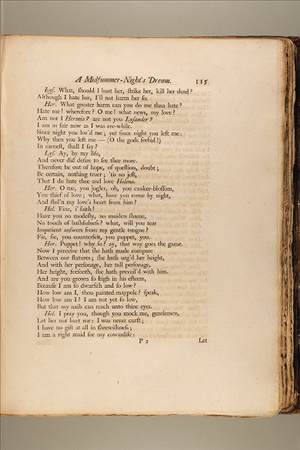 A Midsummer-Night's Dream. 115
Lys. What, should I hurt her, strike her, kill her dead?
Although I hate her, I'll not harm her so.
Her. What greater harm can you do me than hate?
Hate me! wherefore? O me! what news, my love?
Am not I Hermia? are not you Lysander?
I am as fair now as I was ere-while.
Since night you lov'd me; yet since night you left me:
Why then you left me — (O the gods forbid!)
In earnest, shall I say?
Lys. Ay, by my life,
And never did desire to see thee more.
Therefore be out of hope, of question, doubt;
Be certain, nothing truer; 'tis no jest,
That I do hate thee and love Helena.
Her. O me, you jugler, oh, you canker-blossom,
You thief of love; what, have you come by night,
And stol'n my love's heart from him?
Hel. Fine, i' faith!
Have you no modesty, no maiden shame,
No touch of bashfulness? what, will you tear
Impatient answers from my gentle tongue?
Fie, fie, you counterfeit, you puppet, you.
Her. Puppet! why so? ay, that way goes the game.
Now I perceive that she hath made compare
Between our statures; she hath urg'd her height,
And with her personage, her tall personage,
Her height, forsooth, she hath prevail'd with him.
And are you grown so high in his esteem,
Because I am so dwarfish and so low?
How low am I, thou painted maypole? speak,
How low am I? I am not yet so low,
But that my nails can reach unto thine eyes.
Hel. I pray you, though you mock me, gentlemen,
Let her not hurt me: I was never curst;
I have no gift at all in shrewishness;
I am a right maid for my cowardise:
P 2 Let